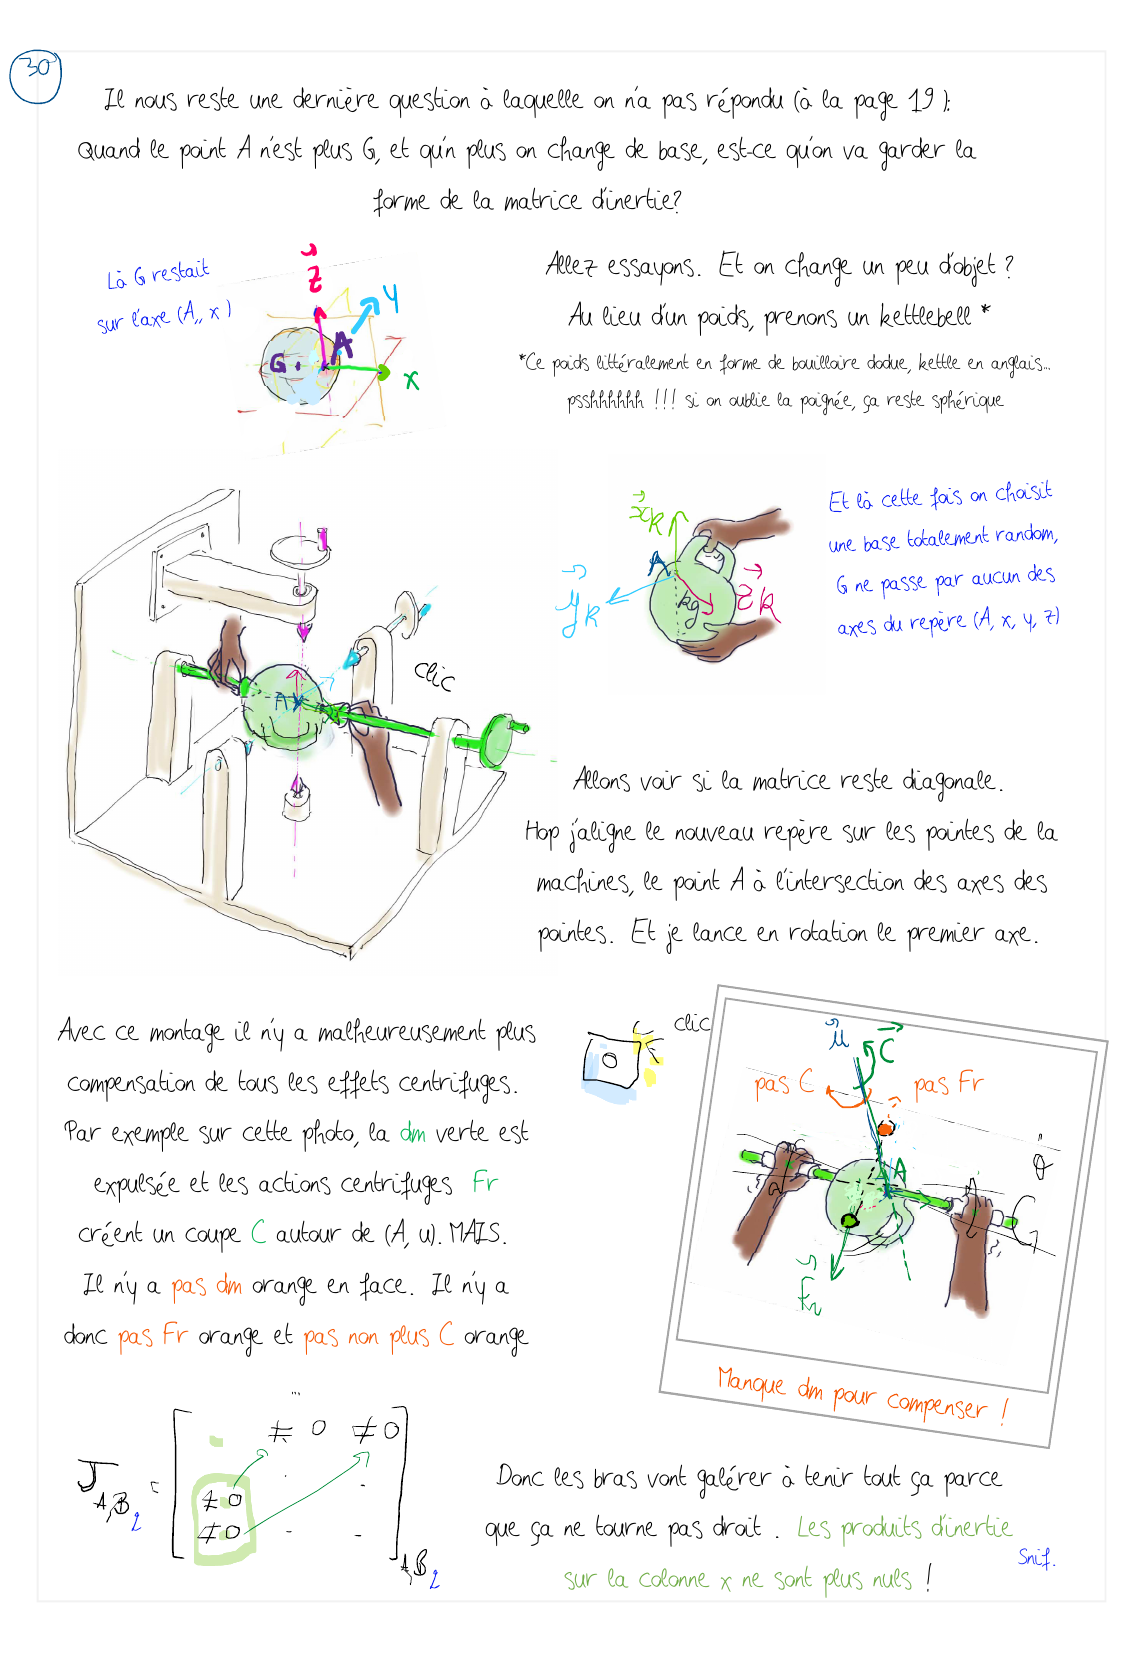 30
Il nous reste une dernière question à laquelle on n'a pas répondu (à la page 19):
Quand le point A n'est plus G, et qu'n plus on change de base, est-ce qu'on va garder la
forme de la matrice d'inertie?
Là G restait
sur l'axe (A,, x)
z
y
A
G
x
Allez essayons. Et on change un peu d'objet ?
Au lieu d'un poids, prenons un kettlebell *
*Ce poids littéralement en forme de bouilloire dodue, kettle en anglais...
psshhhhhh !!! si on oublie la poignée, ça reste sphérique
xk
A
yk
zk
kg
Et là cette fois on choisit
une base totalement random,
G ne passe par aucun des
axes du repère (A, x, y, z)
clic
A
Allons voir si la matrice reste diagonale.
Hop j'aligne le nouveau repère sur les pointes de la
machines, le point A à l'intersection des axes des
pointes. Et je lance en rotation le premier axe.
Avec ce montage il n'y a malheureusement plus
compensation de tous les effets centrifuges.
Par exemple sur cette photo, la dm verte est
expulsée et les actions centrifuges Fr
créent un coupe C autour de (A, u). MAIS.
Il n'y a pas dm orange en face. Il n'y a
donc pas Fr orange et pas non plus C orange
clic
u
C
pas C
pas Fr
A
Fr
Manque dm pour compenser !
...
≠ 0 ≠ 0
J A,B2 =
≠ 0
≠ 0
A,B2
Donc les bras vont galérer à tenir tout ça parce
que ça ne tourne pas droit . Les produits d'inertie
sur la colonne x ne sont plus nuls !
Snif.